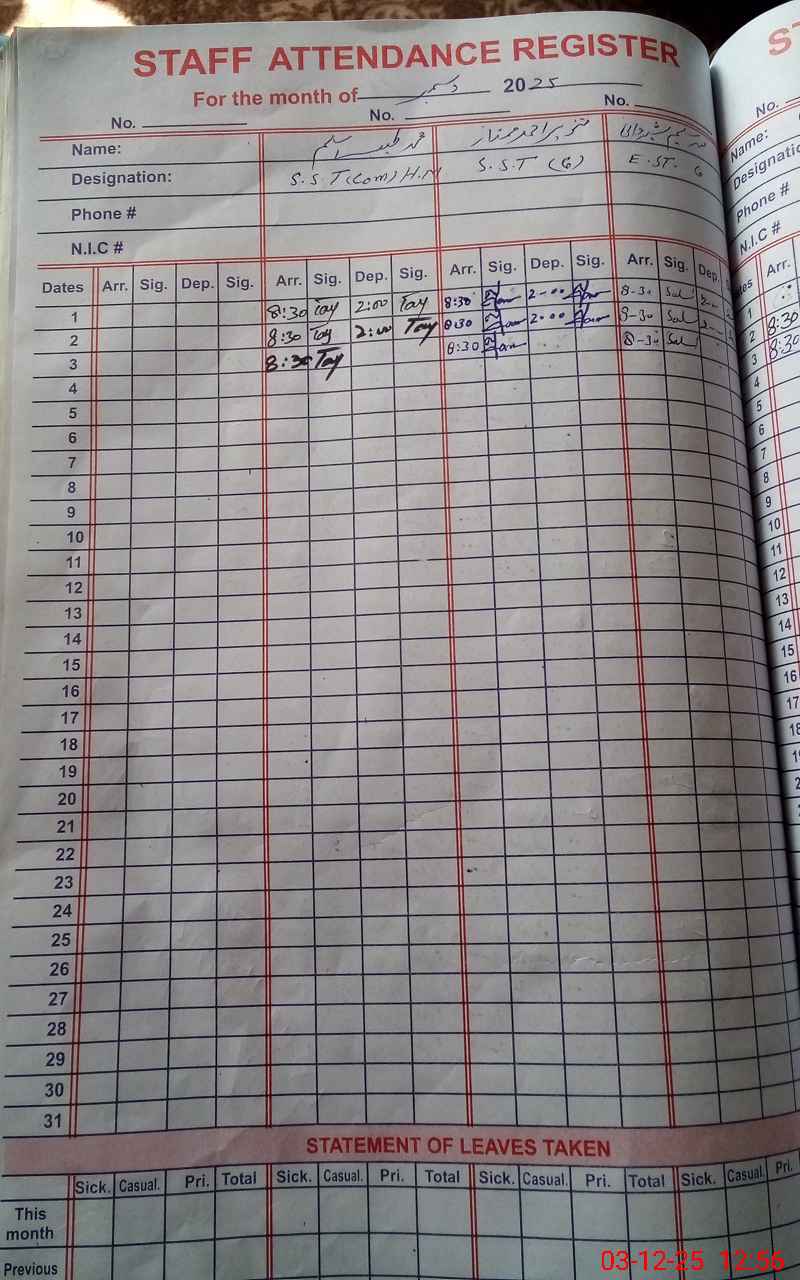 STAFF ATTENDANCE REGISTER
For the month of دسمبر 2025
No. No. No.
Name: محمد طیب اسلم تنویر احمد ممتاز
Designation: S.S.T (Com) H.M S.S.T (G) E.ST. G
Phone #
N.I.C #
Dates Arr. Sig. Dep. Sig. Arr. Sig. Dep. Sig. Arr. Sig. Dep. Sig. Arr. Sig. Dep.
1 8:30 Tay 2:00 Tay 8:30 2-00 8-30 Sal
2 8:30 Tay 2:00 Tay 8:30 2:00 8-30 Sal
3 8:30 Tay 8:30 8-30 Sal
4
5
6
7
8
9
10
11
12
13
14
15
16
17
18
19
20
21
22
23
24
25
26
27
28
29
30
31
STATEMENT OF LEAVES TAKEN
Sick. Casual. Pri. Total Sick. Casual. Pri. Total Sick. Casual. Pri. Total Sick. Casual. Pri.
This
month
Previous
ST
No.
Name:
Designatio
Phone #
N.I.C #
es Arr.
1
2 8:30
3 8:30
4
5
6
7
8
9
10
11
12
13
14
15
16
17
18
03-12-25 12:56